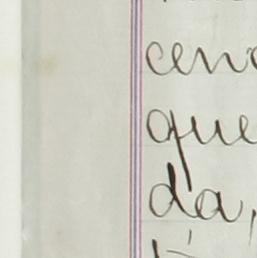 cend
que
da,